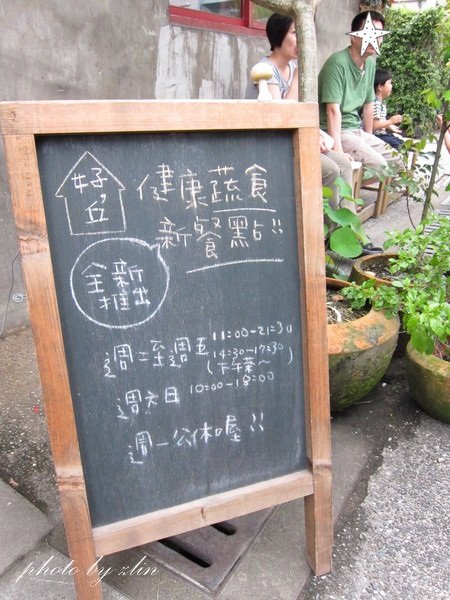 好,丘
健康蔬食
新餐點!!
全新
推出
週二至週五 11:00-21:30
14:30-17:30
(下午茶~)
週六日 10:00-18:00
週一公休喔!!
photo by zlin